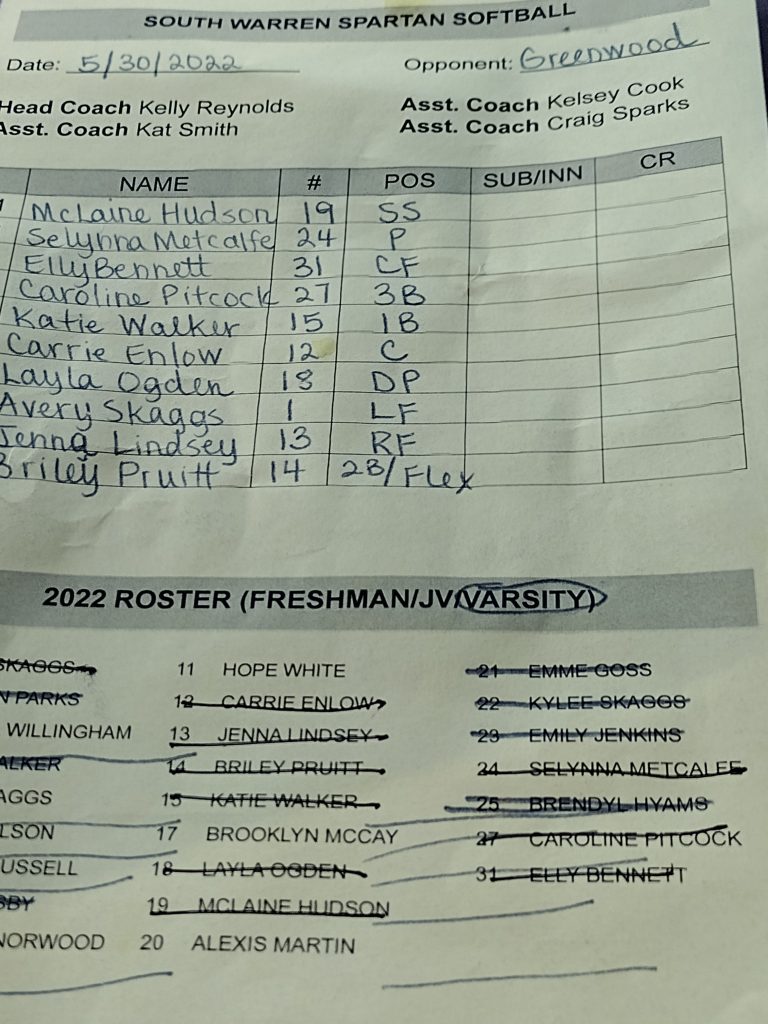 SOUTH WARREN SPARTAN SOFTBALL
Date: 5/30/2022 Opponent: Greenwood
Head Coach Kelly Reynolds Asst. Coach Kelsey Cook
Asst. Coach Kat Smith Asst. Coach Craig Sparks
NAME # POS SUB/INN CR
McLaine Hudson 19 SS
Selynna Metcalfe 24 P
Elly Bennett 31 CF
Caroline Pitcock 27 3B
Katie Walker 15 1B
Carrie Enlow 12 C
Layla Ogden 18 DP
Avery Skaggs 1 LF
Jenna Lindsey 13 RF
Briley Pruitt 14 2B/Flex
2022 ROSTER (FRESHMAN/JV/VARSITY)
SKAGGS 11 HOPE WHITE 21 EMME GOSS
N PARKS 12 CARRIE ENLOW 22 KYLEE SKAGGS
WILLINGHAM 13 JENNA LINDSEY 23 EMILY JENKINS
ALKER 14 BRILEY PRUITT 24 SELYNNA METCALFE
AGGS 15 KATIE WALKER 25 BRENDYL HYAMS
LSON 17 BROOKLYN MCCAY 27 CAROLINE PITCOCK
USSELL 18 LAYLA OGDEN 31 ELLY BENNETT
BBY 19 MCLAINE HUDSON
NORWOOD 20 ALEXIS MARTIN